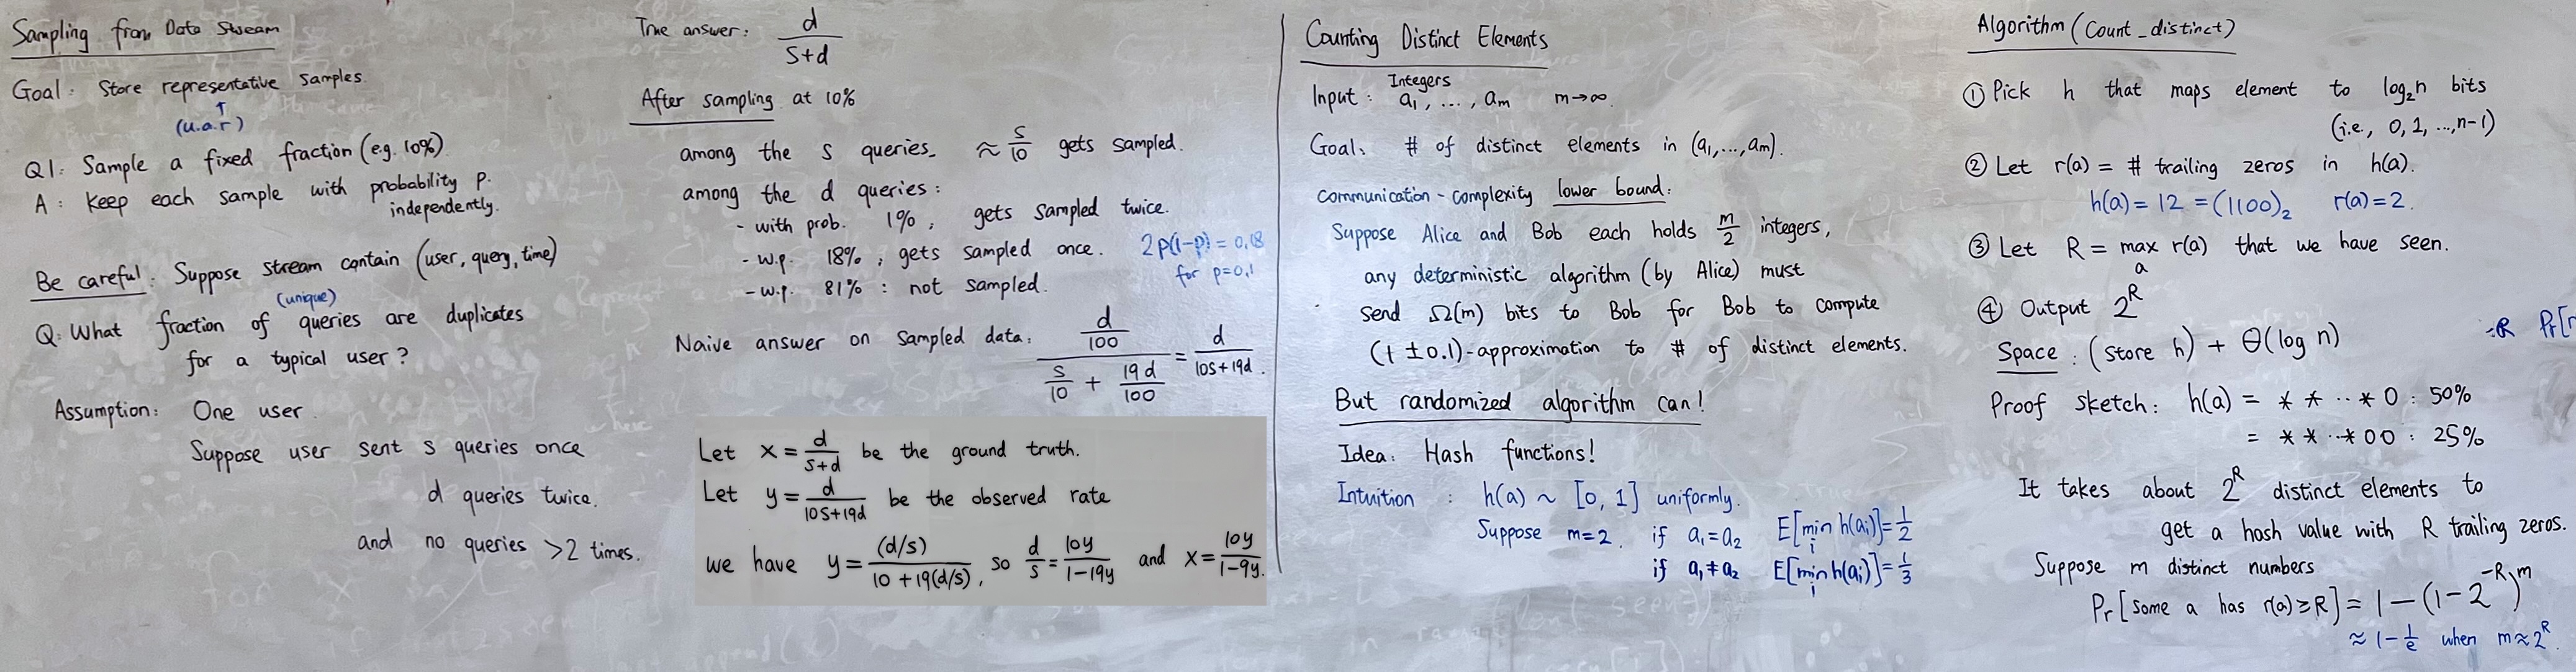 Sampling from Data Stream
Goal: Store representative samples.
↑
(u.a.r)
Q1: Sample a fixed fraction (e.g. 10%)
A: Keep each sample with probability p.
independently.
Be careful: Suppose stream contain (user, query, time)
(unique)
Q: What fraction of queries are duplicates
for a typical user?
Assumption: One user.
Suppose user sent s queries once
d queries twice.
and no queries >2 times.
True answer: d/(s+d)
After sampling at 10%
among the s queries. ≈ s/10 gets sampled.
among the d queries:
- with prob. 1%, gets sampled twice.
- w.p. 18%, gets sampled once. 2p(1-p) = 0.18
for p=0.1
- w.p. 81%: not sampled.
Naive answer on sampled data: (d/100)/(s/10 + 19d/100) = d/(10s+19d).
Let x = d/(s+d) be the ground truth.
Let y = d/(10s+19d) be the observed rate
we have y = (d/s)/(10+19(d/s)), so d/s = 10y/(1-19y) and x = 10y/(1-9y).
Counting Distinct Elements
Integers
Input: a₁, ..., aₘ m→∞.
Goal: # of distinct elements in (a₁,...,aₘ).
communication-complexity lower bound:
Suppose Alice and Bob each holds m/2 integers,
any deterministic algorithm (by Alice) must
send Ω(m) bits to Bob for Bob to compute
(1±0.1)-approximation to # of distinct elements.
But randomized algorithm can!
Idea: Hash functions!
Intuition: h(a) ~ [0, 1] uniformly.
Suppose m=2. if a₁=a₂ E[min_i h(aᵢ)]=1/2
if a₁≠a₂ E[min_i h(aᵢ)]=1/3
Algorithm (Count_distinct)
① Pick h that maps element to log₂n bits
(i.e., 0, 1, ..., n-1)
② Let r(a) = # trailing zeros in h(a).
h(a) = 12 = (1100)₂ r(a)=2.
③ Let R = max_a r(a) that we have seen.
④ Output 2^R
-R Pr[
Space: (store h) + Θ(log n)
Proof sketch: h(a) = * * ·· * 0 : 50%
= * * ·· * 0 0 : 25%
It takes about 2^R distinct elements to
get a hash value with R trailing zeros.
Suppose m distinct numbers
Pr[some a has r(a)≥R] = 1-(1-2^-R)^m
≈ 1-1/e when m≈2^R